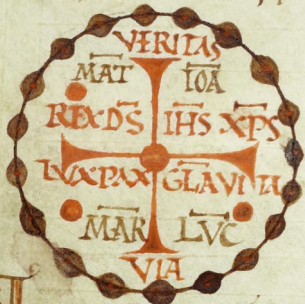 VERITAS
M̅A̅T̅ I̅O̅A̅
REX D̅S̅ I̅H̅S̅ X̅P̅S̅
LUX PAX G̅L̅A̅ VIVITA
M̅A̅R̅ L̅V̅C̅
VIA